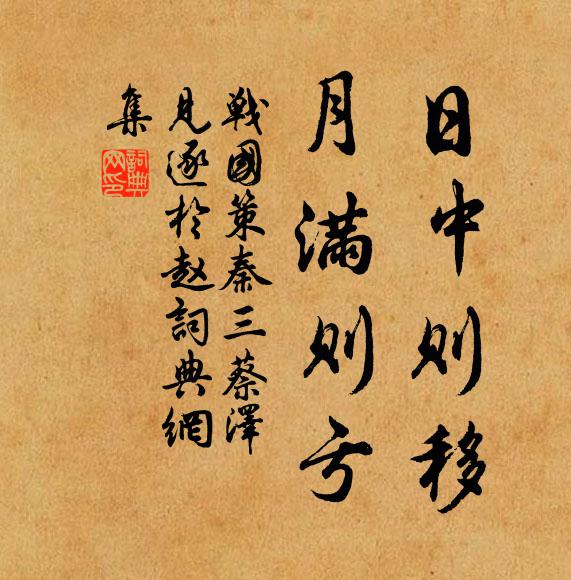 日中则移
月满则亏
戦國策秦三蔡澤
見逐於赵詞典網
集
詞典
网印